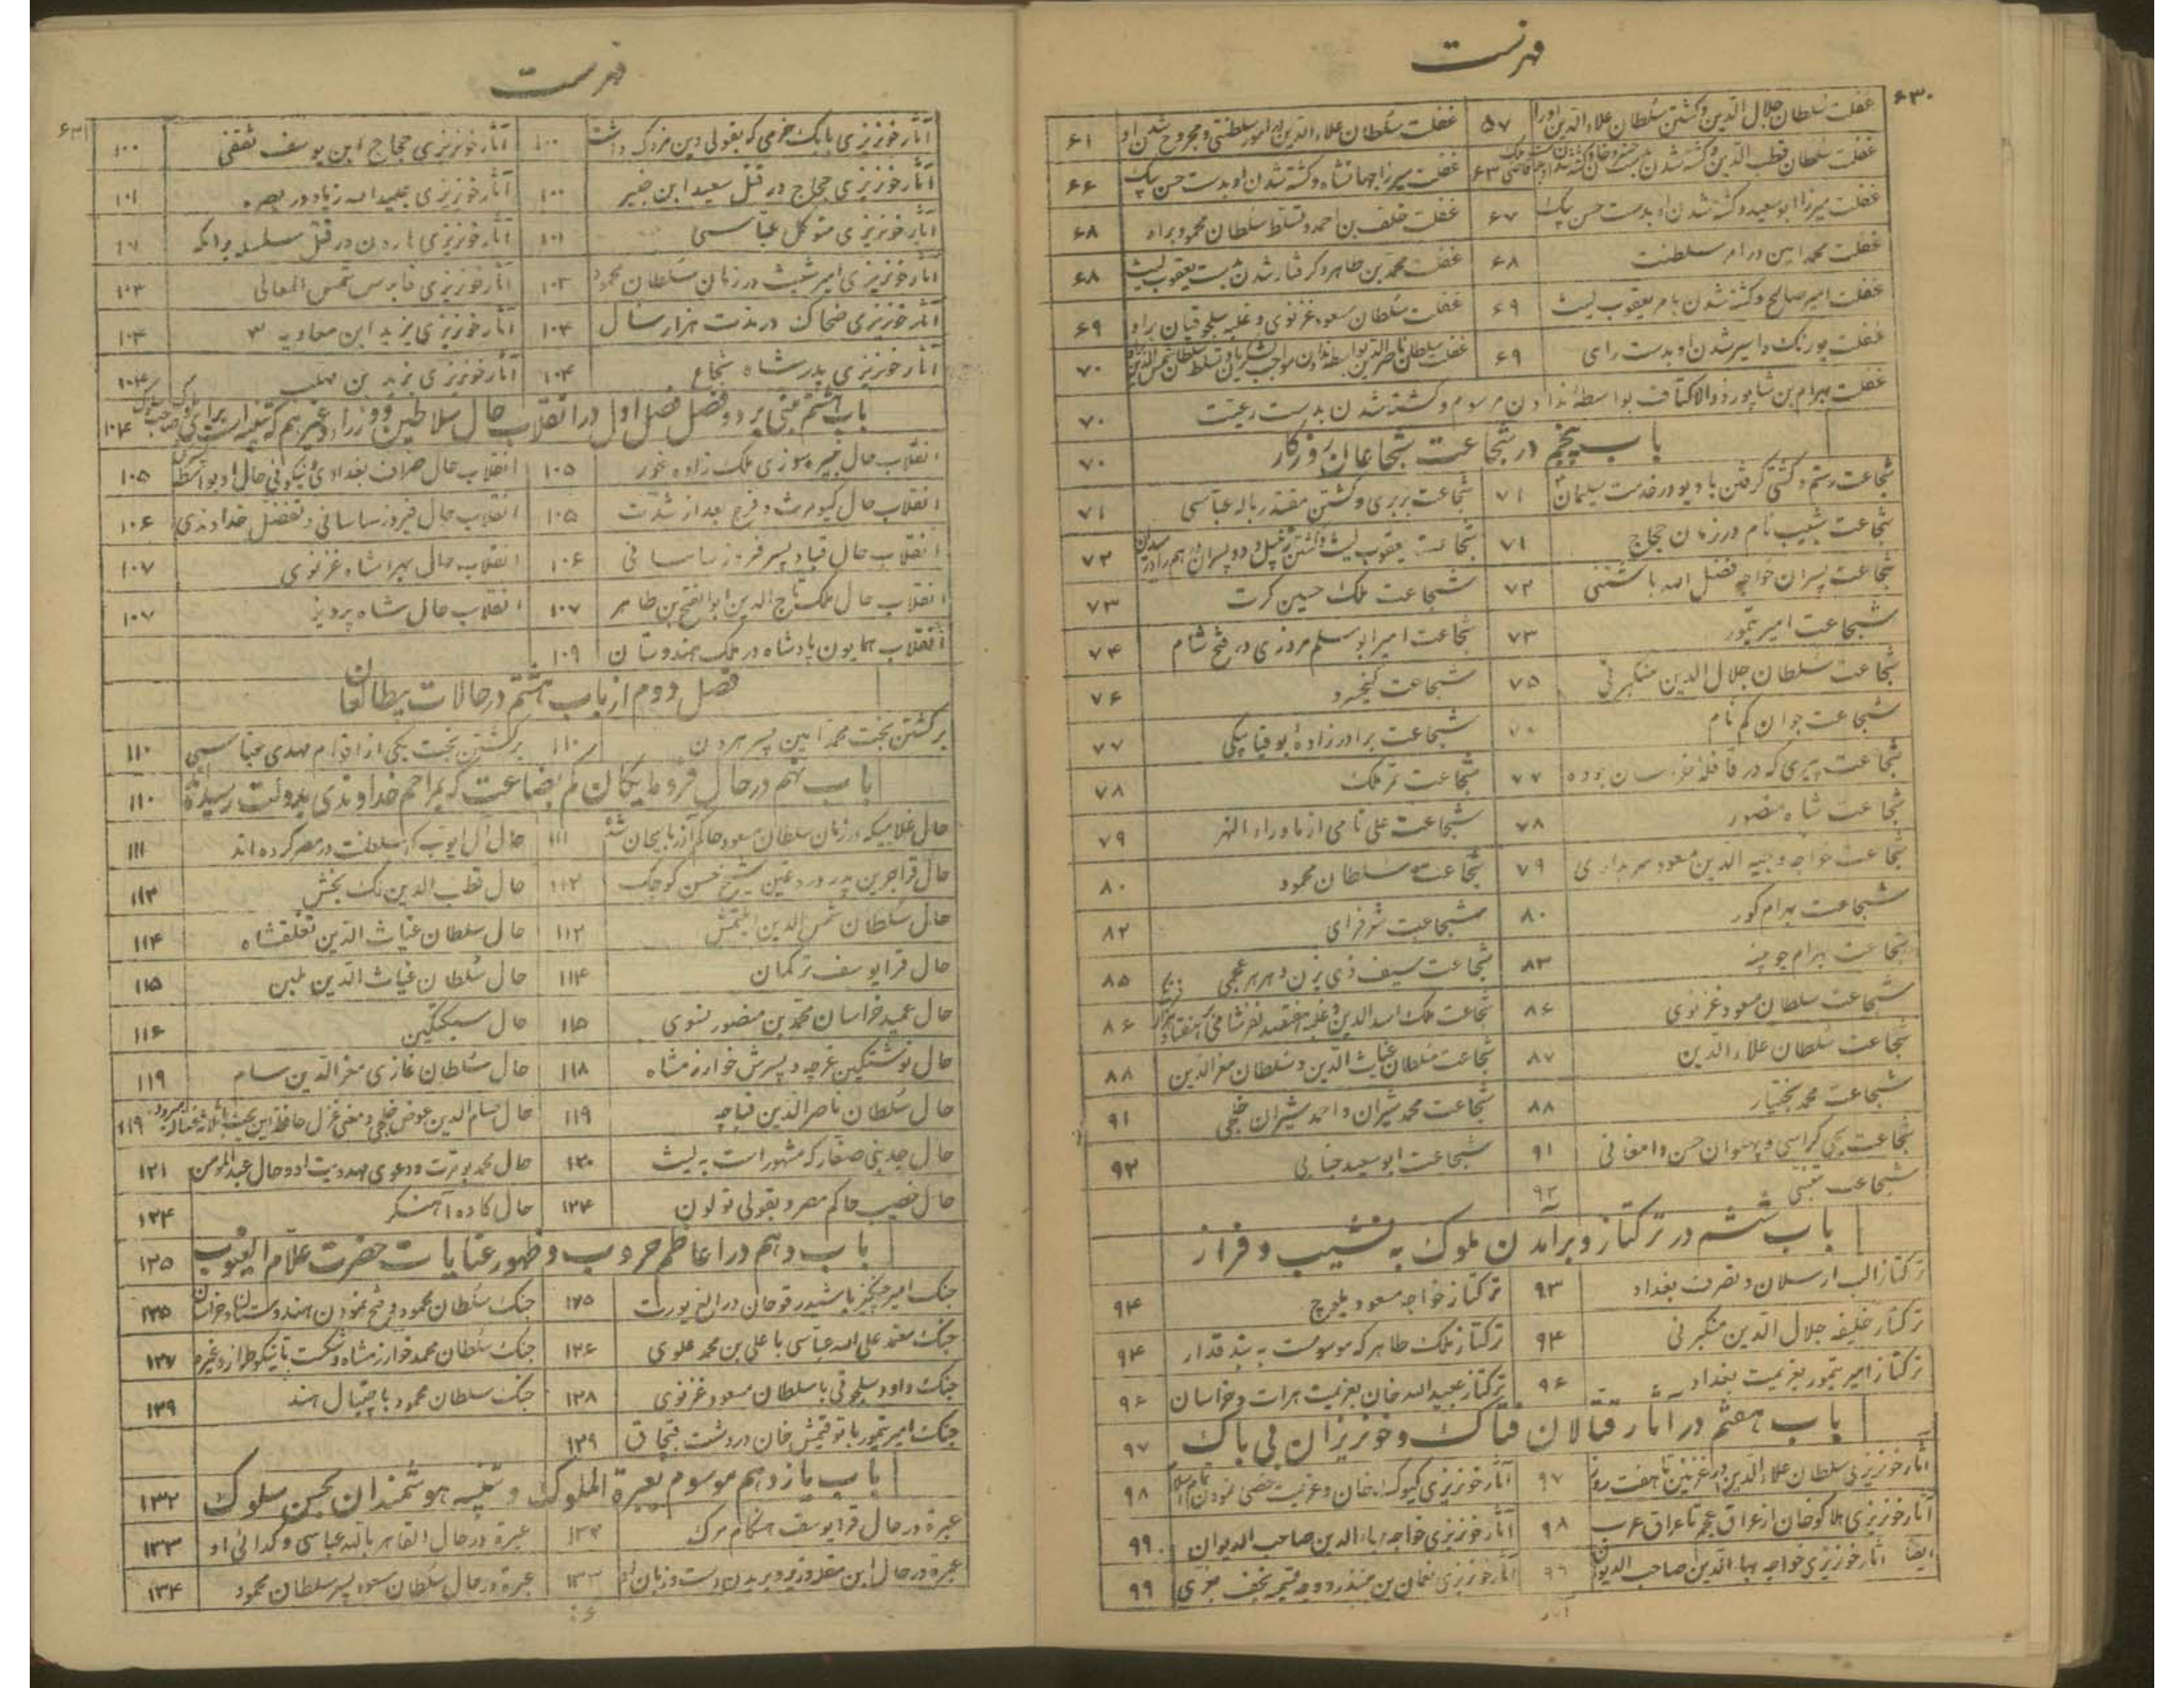 فهرست
۶۳۰
غفلت سلطان جلال الدین و کشتن سلطان علاء الدین اورا ۵۷ غفلت سلطان علاء الدین در امور سلطنتی و مجروح شدن او ۶۱
غفلت سلطان قطب الدین و کشته شدن ۶۳ غفلت میرزا جهانشاه و کشته شدن او بدست حسن بیک ۶۶
غفلت میرزا ابوسعید و کشته شدن او بدست حسن بیک ۶۷ غفلت خلف بن احمد و تسلط سلطان محمود براو ۶۸
غفلت محمد امین در امر سلطنت ۶۸ غفلت محمد بن طاهر و گرفتار شدن بدست یعقوب لیث ۶۸
غفلت امیر صالح و کشته شدن بامر یعقوب لیث ۶۹ غفلت سلطان مسعود غزنوی و غلبه سلجوقیان براو ۶۹
غفلت پورنک و اسیر شدن او بدست رای ۶۹ غفلت سلطان ناصر الدین بواسطه ندادن مواجب لشکریان و تسلط سلطان شمس الدین ۷۰
غفلت بهرام بن شاپور ذوالاکتاف بواسطهٔ ندادن مرسوم و کشته شدن بدست رعیت ۷۰
باب پنجم در شجاعت شجاعان روزکار ۷۰
شجاعت رستم و کشتی گرفتن با دیو در خدمت سلیمان ۷۱ شجاعت بربری و کشتن مقتدر بالله عباسی ۷۱
شجاعت شبیب نام در زمان حجاج ۷۱ شجاعت یعقوب لیث و کشتن رتبیل و دو پسران ۷۲
شجاعت پسران خواجه فضل الله باشتنی ۷۲ شجاعت ملک حسین کرت ۷۳
شجاعت امیر تیمور ۷۳ شجاعت امیر ابو سلم مروزی در فتح شام ۷۴
شجاعت سلطان جلال الدین منکبرنی ۷۵ شجاعت کیخسرو ۷۶
شجاعت جوان کم نام شجاعت برادر زادهٔ بوقیاپیکی ۷۷
شجاعت پیری که در قافله خراسان بوده ۷۷ شجاعت تمر ملک ۷۸
شجاعت شاه منصور ۷۸ شجاعت علی نامی از ماوراء النهر ۷۹
شجاعت خواجه وجیه الدین مسعود سربداری ۷۹ شجاعت سلطان محمود ۸۰
شجاعت بهرام کور ۸۰ شجاعت شرفرای ۸۲
شجاعت بهرام چوبینه ۸۳ شجاعت سیف ذی یزن و هرمز عجمی ۸۵
شجاعت سلطان مسعود غزنوی ۸۶ شجاعت ملک اسد الدین و غلبه هفتصد نفر شامی ۸۶
شجاعت سلطان علاء الدین ۸۷ شجاعت سلطان غیاث الدین و سلطان معز الدین ۸۸
شجاعت محمد بختیار ۸۸ شجاعت محمد شیران و احمد شیران خلجی ۹۱
شجاعت یحیی کراسی و پهلوان حسن دامغانی ۹۱ شجاعت ابو سعید جنابی ۹۲
شجاعت متنبی ۹۲
باب ششم در ترکتاز و برآمدن ملوک به نشیب و فراز
ترکتاز الب ارسلان و تصرف بغداد ۹۳ ترکتاز خواجه مسعود بلوچ ۹۴
ترکتاز خلیفه جلال الدین منکبرنی ۹۴ ترکتاز ملک طاهر که موسومست به بند قدار ۹۴
ترکتاز امیر تیمور بعزیمت بغداد ۹۶ ترکتاز عبید الله خان بعزیمت هرات و خراسان ۹۶
باب هفتم در آثار قتالان فتاک و خونریزان بی باک ۹۷
آثار خونریزی سلطان علاء الدین در غزنین تا هفت روز ۹۷ آثار خونریزی کیوک خان و عزیمت خصی نمودن تمام اسلام ۹۸
آثار خونریزی هلاکو خان از عراق عجم تا عراق عرب ۹۸ آثار خونریزی خواجه بهاء الدین صاحب الدیوان ۹۹
ایضا آثار خونریزی خواجه بهاء الدین صاحب الدیوان ۹۹ آثار خونریزی نعمان بن منذر ۹۹
فهرست
۶۳۱
آثار خونریزی بابک خرمی که بقولی دین مزدک داشت ۱۰۰ آثار خونریزی حجاج ابن یوسف ثقفی ۱۰۰
آثار خونریزی حجاج در قتل سعید ابن جبیر ۱۰۰ آثار خونریزی عبید الله زیاد در بصره ۱۰۱
آثار خونریزی متوکل عباسی ۱۰۱ آثار خونریزی هارون در قتل سلسله برامکه
آثار خونریزی امیر شیث در زمان سلطان محمود ۱۰۲ آثار خونریزی قابوس شمس المعالی ۱۰۳
آثار خونریزی ضحاک در مدت هزار سال ۱۰۴ آثار خونریزی یزید ابن معاویه ۱۰۴
آثار خونریزی پدر شاه شجاع ۱۰۴ آثار خونریزی یزید بن مهلب ۱۰۴
باب هشتم مبنی بر دو فصل فصل اول در انقلاب حال سلاطین و وزراء و غیرهم ۱۰۴
انقلاب حال ملک زاده غور ۱۰۵ انقلاب حال صراف بغدادی ۱۰۵
انقلاب حال کیومرث و فرج بعد از شدت ۱۰۵ انقلاب حال فیروز ساسانی و تفضل خداوندی ۱۰۶
انقلاب حال قباد پسر فیروز ساسانی ۱۰۶ انقلاب حال بهرامشاه غزنوی ۱۰۷
انقلاب حال ملک تاج الدین ابو الفتح بن طاهر ۱۰۷ انقلاب حال شاه پرویز ۱۰۷
انقلاب همایون پادشاه در ملک هندوستان ۱۰۹
فصل دوم از باب هشتم در حالات بیطالعان
برکشتن بخت محمد امین پسر هرون ۱۱۰ برکشتن بخت یکی از اقوام مهدی عباسی ۱۱۰
باب نهم در حال فرومایکان کم بضاعت که بمراحم خداوندی بدولت رسیده اند ۱۱۰
حال غلامیکه در زمان سلطان مسعود حاکم آذربایجان شد ۱۱۱ حال آل ایوب که سلطنت در مصر کرده اند ۱۱۱
حال قراجرین پدر شیخ حسن کوچک ۱۱۲ حال قطب الدین لک بخش ۱۱۳
حال سلطان شمس الدین ایلتمش ۱۱۳ حال سلطان غیاث الدین تغلقشاه ۱۱۴
حال قرا یوسف ترکمان ۱۱۴ حال سلطان غیاث الدین بلبن ۱۱۵
حال عمید خراسان محمد بن منصور نسوی ۱۱۵ حال سبکتکین ۱۱۶
حال نوشتکین غرچه و پسرش خوارزمشاه ۱۱۸ حال سلطان غازی معز الدین سام ۱۱۹
حال سلطان ناصر الدین قباچه ۱۱۹ حال حسام الدین عوض خلجی و معنی غزل حافظ ۱۱۹
حال صفار که مشهور است به لیث ۱۲۰ حال محمد تومرت و دعوی مهدویت او و حال عبد المومن ۱۲۱
حال خصیب حاکم مصر و بقولی تولون ۱۲۴ حال کاوه آهنگر ۱۲۴
باب دهم در اعاظم حروب و ظهور عنایات حضرت علام الغیوب ۱۲۵
جنک امیر چنگیز ۱۲۵ جنک سلطان محمود و فتح نمودن هندوستان و خراسان ۱۲۵
جنک معتمد علی الله عباسی با علی بن محمد علوی ۱۲۶ جنک سلطان محمد خوارزمشاه و شکست تاینکو طراز و غیره ۱۲۷
جنک داود سلجوقی با سلطان مسعود غزنوی ۱۲۸ جنک سلطان محمود با جیپال هند ۱۲۹
جنک امیر تیمور با توقتمش خان در دشت قبچاق ۱۲۹
باب یازدهم موسوم بعبرة الملوک و تنبیه هوشمندان بحسن سلوک ۱۳۲
عبرة در حال قرا یوسف هنگام مرک ۱۳۳ عبرة در حال القاهر بالله عباسی و گدائی او ۱۳۳
عبرة در حال ابن مقله وزیر و بریدن دست و زبان او ۱۳۳ عبرة در حال سلطان مسعود پسر سلطان محمود ۱۳۴